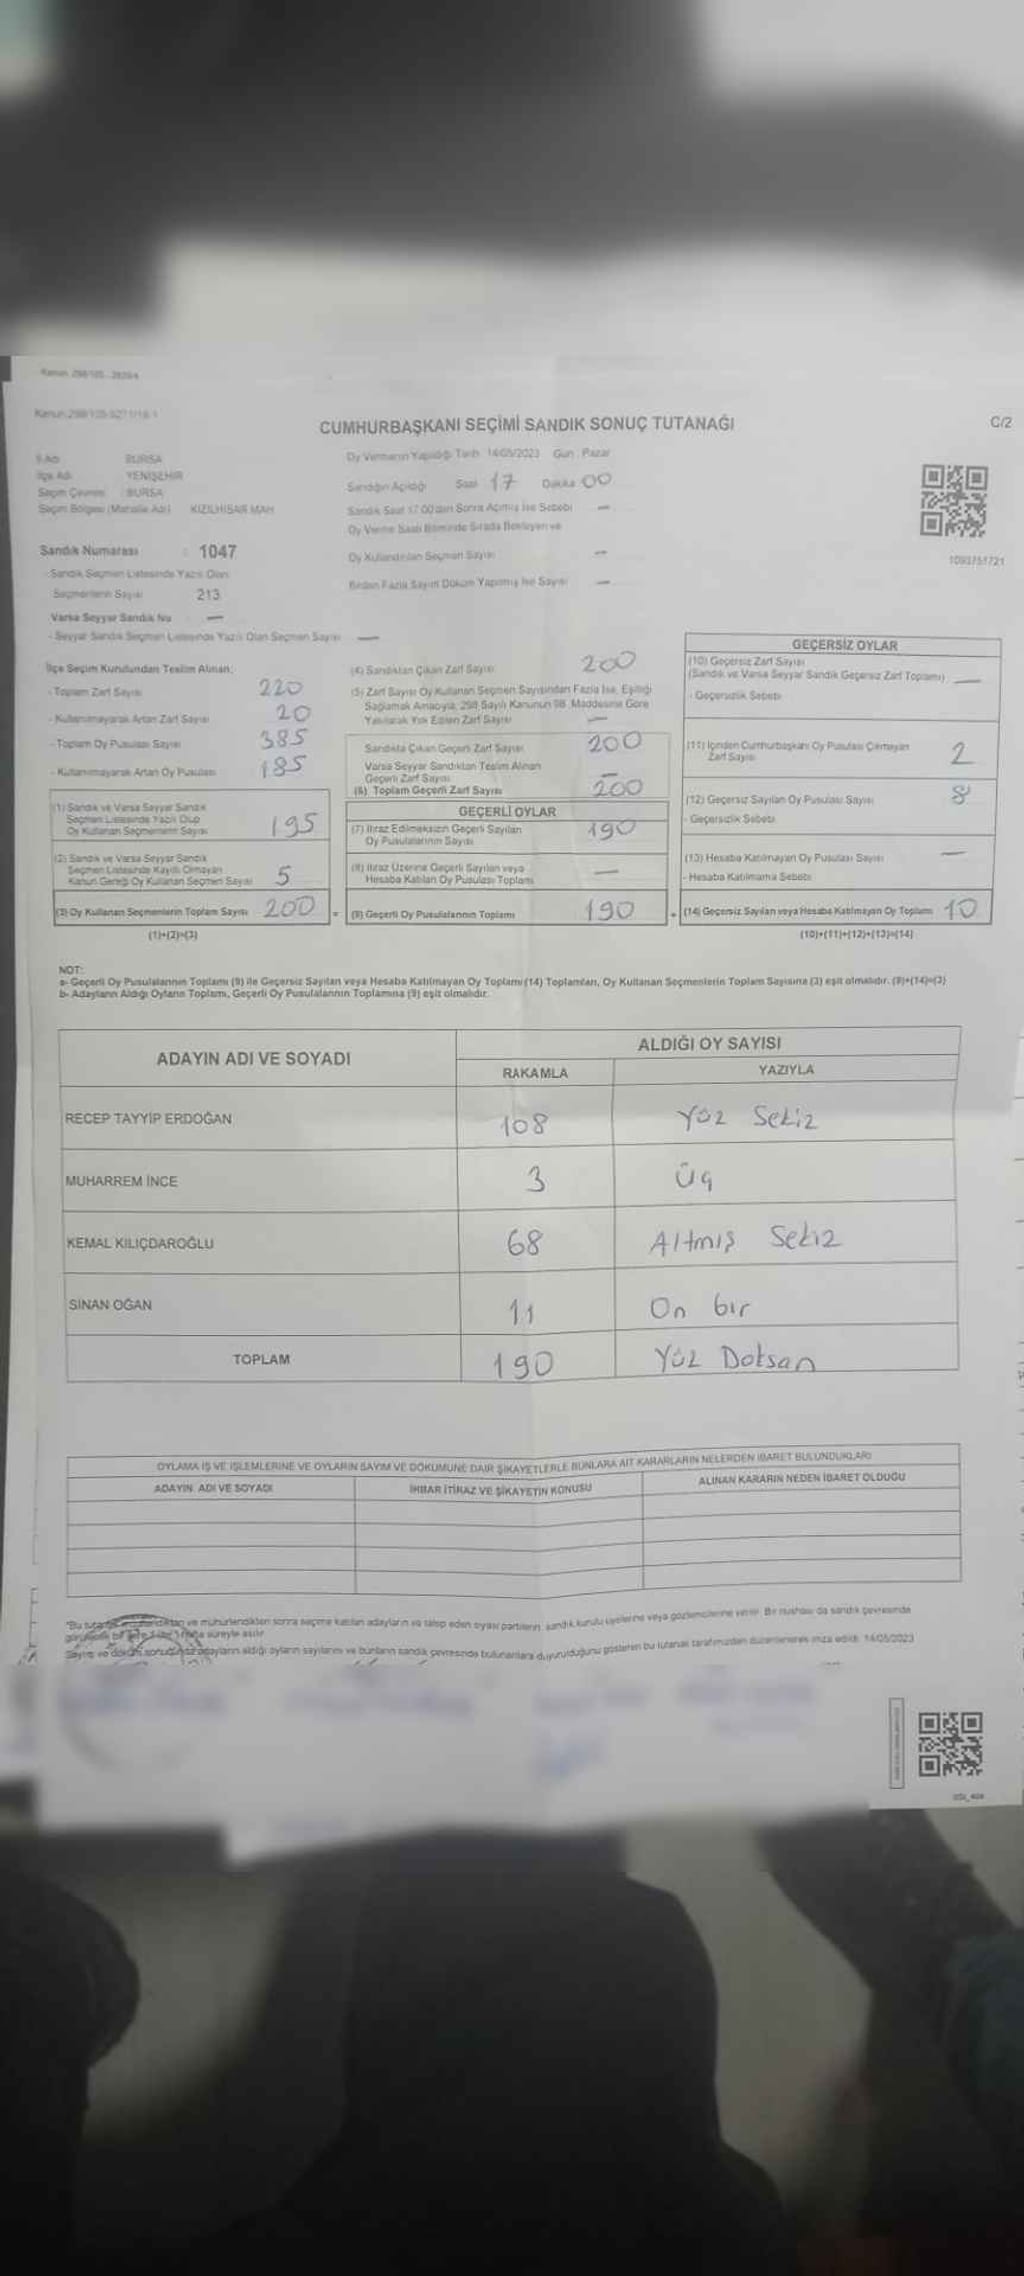 Kanun 298/105
CUMHURBAŞKANI SEÇİMİ SANDIK SONUÇ TUTANAĞI
C/2
İli Adı BURSA
İlçe Adı YENİŞEHİR
Seçim Çevresi BURSA
Seçim Bölgesi (Mahalle Adı) KIZILHİSAR MAH
Oy Vermenin Yapıldığı Tarih 14/05/2023 Gün Pazar
Sandığın Açıldığı Saat 17 Dakika 00
Sandık Saat 17.00'dan Sonra Açılmış İse Sebebi —
Oy Verme Saati Bitiminde Sırada Bekleyen ve
Oy Kullandırılan Seçmen Sayısı —
Birden Fazla Sayım Döküm Yapılmış İse Sayısı —
1093751721
Sandık Numarası : 1047
- Sandık Seçmen Listesinde Yazılı Olan
Seçmenlerin Sayısı 213
Varsa Seyyar Sandık No —
- Seyyar Sandık Seçmen Listesinde Yazılı Olan Seçmen Sayısı —
İlçe Seçim Kurulundan Teslim Alınan;
- Toplam Zarf Sayısı 220
- Kullanılmayarak Artan Zarf Sayısı 20
- Toplam Oy Pusulası Sayısı 385
- Kullanılmayarak Artan Oy Pusulası 185
(1) Sandık ve Varsa Seyyar Sandık
Seçmen Listesinde Yazılı Olup
Oy Kullanan Seçmenlerin Sayısı 195
(2) Sandık ve Varsa Seyyar Sandık
Seçmen Listesinde Kayıtlı Olmayan
Kanun Gereği Oy Kullanan Seçmen Sayısı 5
(3) Oy Kullanan Seçmenlerin Toplam Sayısı 200
(1)+(2)=(3)
(4) Sandıktan Çıkan Zarf Sayısı 200
(5) Zarf Sayısı Oy Kullanan Seçmen Sayısından Fazla İse, Eşitliği
Sağlamak Amacıyla, 298 Sayılı Kanunun 98. Maddesine Göre
Yakılarak Yok Edilen Zarf Sayısı —
Sandıkta Çıkan Geçerli Zarf Sayısı 200
Varsa Seyyar Sandıktan Teslim Alınan
Geçerli Zarf Sayısı —
(6) Toplam Geçerli Zarf Sayısı 200
GEÇERLİ OYLAR
(7) İtiraz Edilmeksizin Geçerli Sayılan
Oy Pusulalarının Sayısı 190
(8) İtiraz Üzerine Geçerli Sayılan veya
Hesaba Katılan Oy Pusulası Toplamı —
= (9) Geçerli Oy Pusulalarının Toplamı 190
GEÇERSİZ OYLAR
(10) Geçersiz Zarf Sayısı
(Sandık ve Varsa Seyyar Sandık Geçersiz Zarf Toplamı) —
- Geçersizlik Sebebi
(11) İçinden Cumhurbaşkanı Oy Pusulası Çıkmayan
Zarf Sayısı 2
(12) Geçersiz Sayılan Oy Pusulası Sayısı 8
- Geçersizlik Sebebi
(13) Hesaba Katılmayan Oy Pusulası Sayısı —
- Hesaba Katılmama Sebebi
+ (14) Geçersiz Sayılan veya Hesaba Katılmayan Oy Toplamı 10
(10)+(11)+(12)+(13)=(14)
NOT:
a- Geçerli Oy Pusulalarının Toplamı (9) ile Geçersiz Sayılan veya Hesaba Katılmayan Oy Toplamı (14) Toplamları, Oy Kullanan Seçmenlerin Toplam Sayısına (3) eşit olmalıdır. (9)+(14)=(3)
b- Adayların Aldığı Oyların Toplamı, Geçerli Oy Pusulalarının Toplamına (9) eşit olmalıdır.
ADAYIN ADI VE SOYADI ALDIĞI OY SAYISI
RAKAMLA YAZIYLA
RECEP TAYYİP ERDOĞAN 108 Yüz Sekiz
MUHARREM İNCE 3 Üç
KEMAL KILIÇDAROĞLU 68 Altmış Sekiz
SİNAN OĞAN 11 On bir
TOPLAM 190 Yüz Doksan
OYLAMA İŞ VE İŞLEMLERİNE VE OYLARIN SAYIM VE DÖKÜMÜNE DAİR ŞİKAYETLERLE BUNLARA AİT KARARLARIN NELERDEN İBARET BULUNDUKLARI
ADAYIN ADI VE SOYADI İHBAR İTİRAZ VE ŞİKAYETİN KONUSU ALINAN KARARIN NEDEN İBARET OLDUĞU
ve mühürlendikten sonra seçime katılan adayların ve talep eden siyasi partilerin, sandık kurulu üyelerine veya gözlemcilerine verilir. Bir nüshası da sandık çevresinde
süreyle asılır.
Sayım ve döküm adayların aldığı oyların sayılarını ve bunların sandık çevresinde bulunanlara duyurulduğunu gösteren bu tutanak tarafımızdan düzenlenerek imza edildi. 14/05/2023